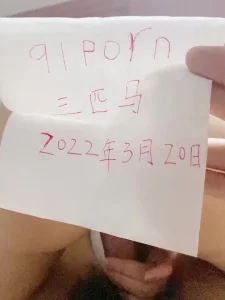 91porn
三匹马
2022年3月20日